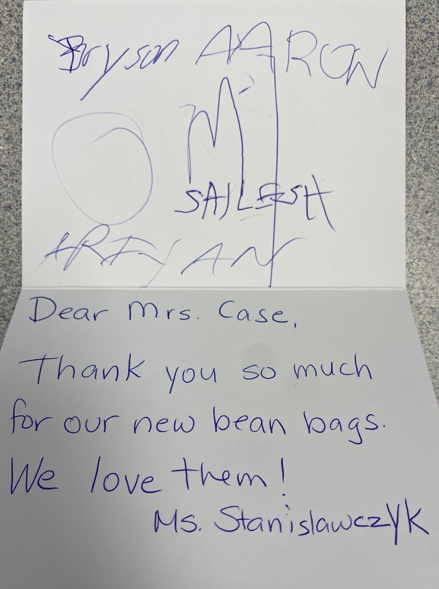 Bryson AARON
M
SAILESH
ARIYAN
Dear Mrs. Case,
Thank you so much
for our new bean bags.
We love them!
Ms. Stanislawczyk